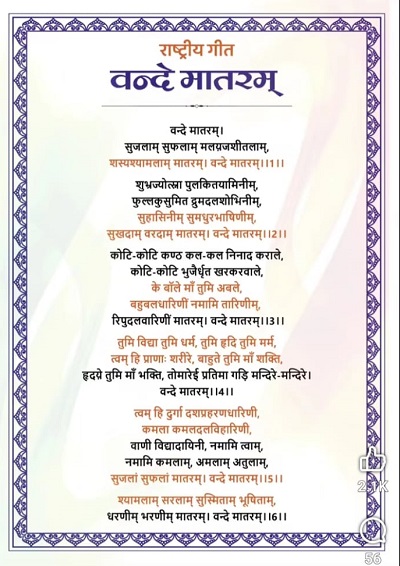 राष्ट्रीय गीत
वन्दे मातरम्
वन्दे मातरम्।
सुजलाम् सुफलाम् मलयजशीतलाम्,
शस्यश्यामलाम् मातरम्। वन्दे मातरम्।।1।।
शुभ्रज्योत्स्ना पुलकितयामिनीम्,
फुल्लकुसुमित द्रुमदलशोभिनीम्,
सुहासिनीम् सुमधुरभाषिणीम्,
सुखदाम् वरदाम् मातरम्। वन्दे मातरम्।।2।।
कोटि-कोटि कण्ठ कल-कल निनाद कराले,
कोटि-कोटि भुजैर्धृत खरकरवाले,
के बॉले माँ तुमि अबले,
बहुबलधारिणीं नमामि तारिणीम्,
रिपुदलवारिणीं मातरम्। वन्दे मातरम्।।3।।
तुमि विद्या तुमि धर्म, तुमि हृदि तुमि मर्म,
त्वम् हि प्राणाः शरीरे, बाहुते तुमि माँ शक्ति,
हृदये तुमि माँ भक्ति, तोमारेई प्रतिमा गड़ि मन्दिरे-मन्दिरे।
वन्दे मातरम्।।4।।
त्वम् हि दुर्गा दशप्रहरणधारिणी,
कमला कमलदलविहारिणी,
वाणी विद्यादायिनी, नमामि त्वाम्,
नमामि कमलाम्, अमलाम् अतुलाम्,
सुजलां सुफलां मातरम्। वन्दे मातरम्।।5।।
श्यामलाम् सरलाम् सुस्मिताम् भूषिताम्,
धरणीम् भरणीम् मातरम्। वन्दे मातरम्।।6।।
2.1K
56